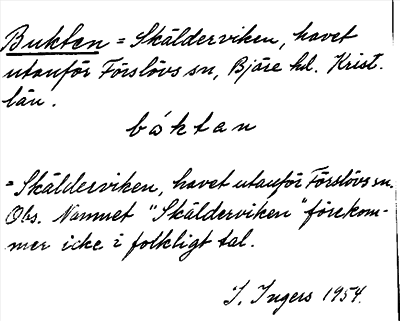 Bukten = Skälderviken, havet
utanför Förslövs sn, Bjäre hd. Krist.
län.
báktan
= Skälderviken, havet utanför Förslövs sn.
Obs. Namnet "Skälderviken" förekom-
mer icke i folkligt tal.
I. Ingers 1954.